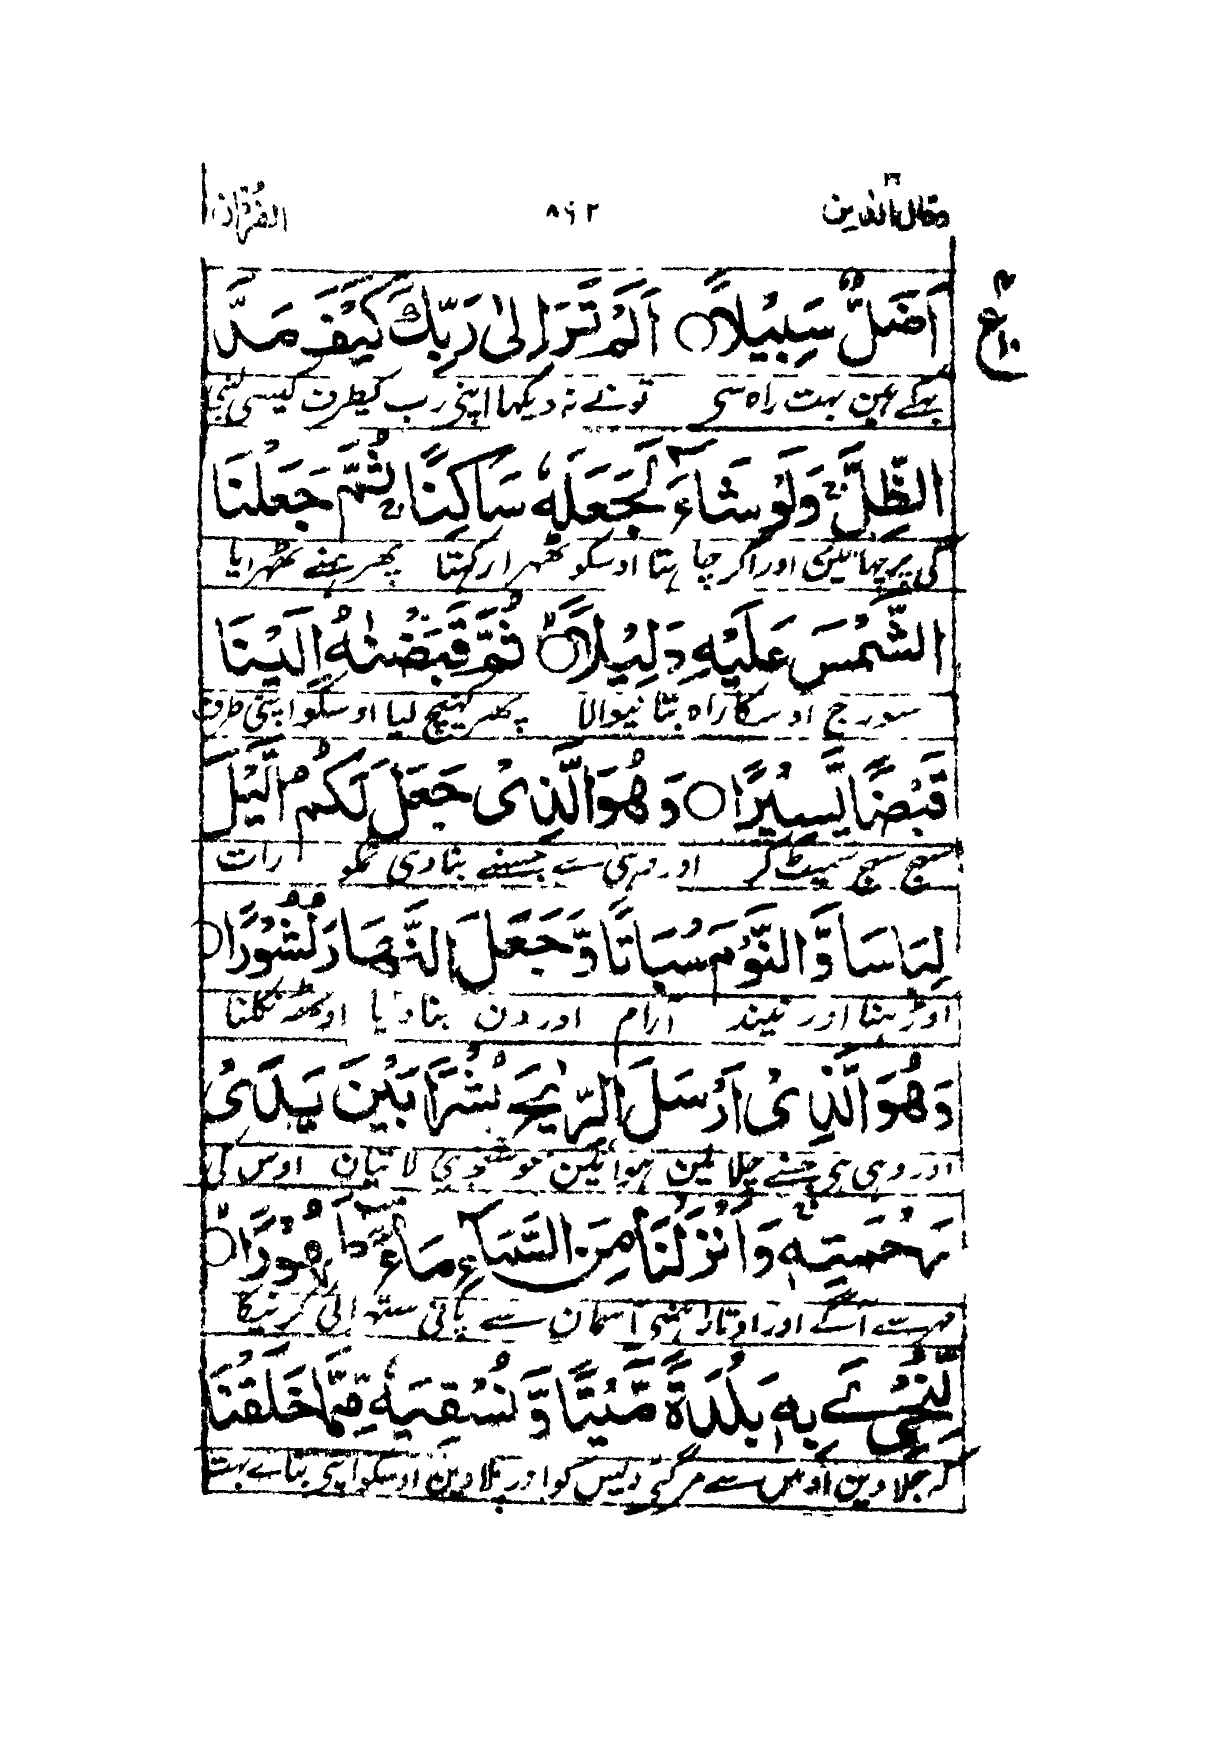 وقال الذین ۱۹ ۸۹۲ الفرقان
اَضَلُّ سَبِیْلًا ○ اَلَمْ تَرَ اِلٰی رَبِّكَ كَیْفَ مَدَّ
بہکے ہین بہت راہ سی تونے نہ دیکہا اپنی رب کیطرف کیسی
الظِّلَّ وَلَوْ شَآءَ لَجَعَلَهٗ سَاكِنًا ثُمَّ جَعَلْنَا
کی پرچہائین اور اگر چاہتا اوسکو ٹھہرا رکہتا پھر ہمنے ٹھہرایا
الشَّمْسَ عَلَیْهِ دَلِیْلًا ○ ثُمَّ قَبَضْنٰهُ اِلَیْنَا
سورج اوسکا راہ بتانیوالا پھر کہینچ لیا اوسکو اپنی طرف
قَبْضًا یَّسِیْرًا ○ وَهُوَ الَّذِیْ جَعَلَ لَكُمُ الَّیْلَ
سہج سہج سمیٹ کر اور وہی ہے جسنے بنا دی تمکو رات
لِبَاسًا وَّالنَّوْمَ سُبَاتًا وَّجَعَلَ النَّهَارَ نُشُوْرًا ○
اوڑہنا اور نیند آرام اور دن بنا دیا اوٹھ نکلنا
وَهُوَ الَّذِیْ اَرْسَلَ الرِّیٰحَ بُشْرًا بَیْنَ یَدَیْ
اور وہی ہی جسنے چلائین ہوائین خوشخبری لاتیان اوس کی
رَحْمَتِهٖ وَاَنْزَلْنَا مِنَ السَّمَآءِ مَآءً طَهُوْرًا ○
مہر سے آگے اور اوتارا ہمنی آسمان سے پانی ستھرائی کرنیکا
لِّنُحْیِۦَ بِهٖ بَلْدَةً مَّیْتًا وَّنُسْقِیَهٗ مِمَّا خَلَقْنَا
کہ جلا دین اوس سے مر گئی دیس کو اور پلا دین اوسکو اپنی بنائے بہت